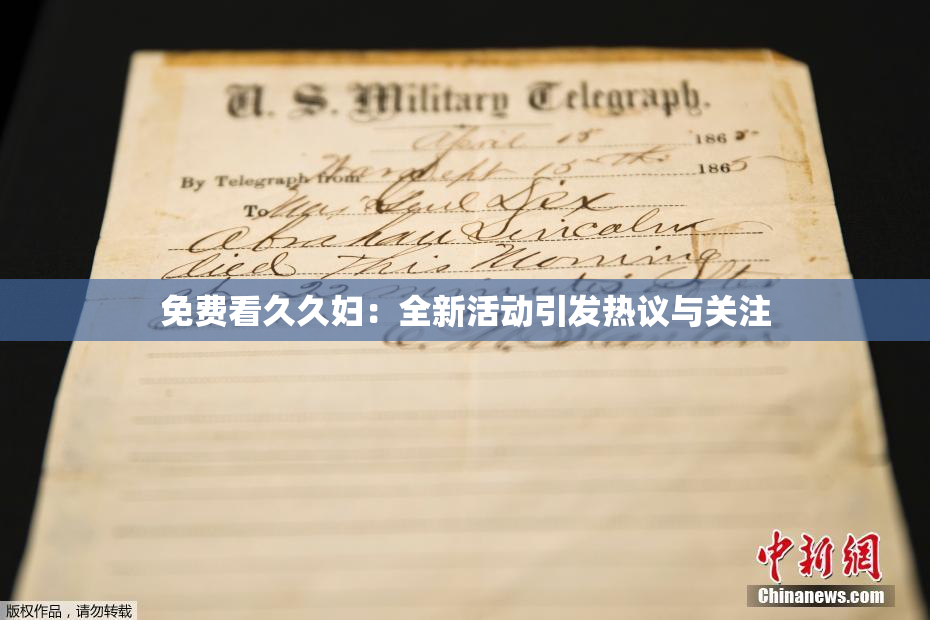 U. S. Military Telegraph.
April 15 1865
By Telegraph from War Dept 15th 1865
To Maj Genl Dix
Abraham Lincoln
died This Morning
at 22 minutes after
免费看久久妇：全新活动引发热议与关注
E. M. Stanton
中新網
Chinanews.com
版权作品，请勿转载